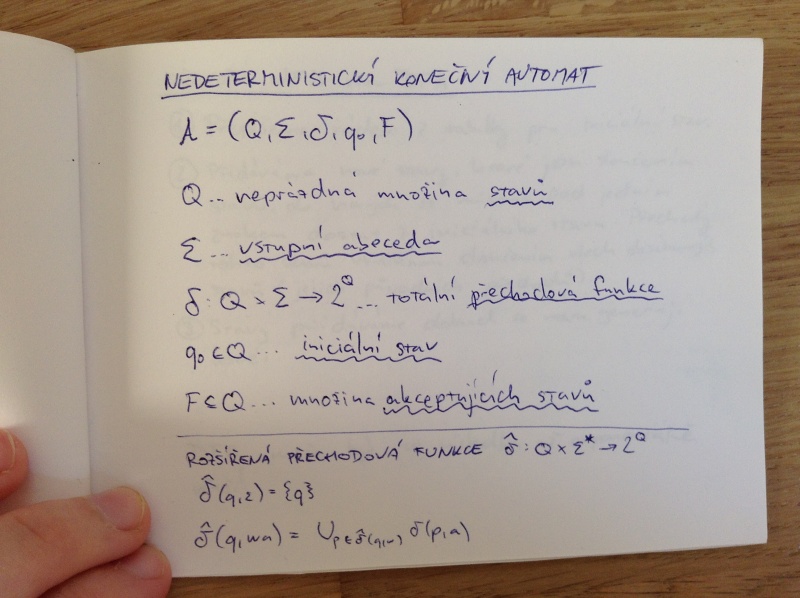 NEDETERMINISTICKÝ KONEČNÝ AUTOMAT
A = (Q, Σ, δ, q₀, F)
Q ... neprázdná množina stavů
Σ ... vstupní abeceda
δ : Q × Σ → 2^Q ... totální přechodová funkce
q₀ ∈ Q ... iniciální stav
F ⊆ Q ... množina akceptujících stavů
ROZŠÍŘENÁ PŘECHODOVÁ FUNKCE δ̂ : Q × Σ* → 2^Q
δ̂(q, ε) = {q}
δ̂(q, wa) = ∪_{p ∈ δ̂(q,w)} δ(p, a)